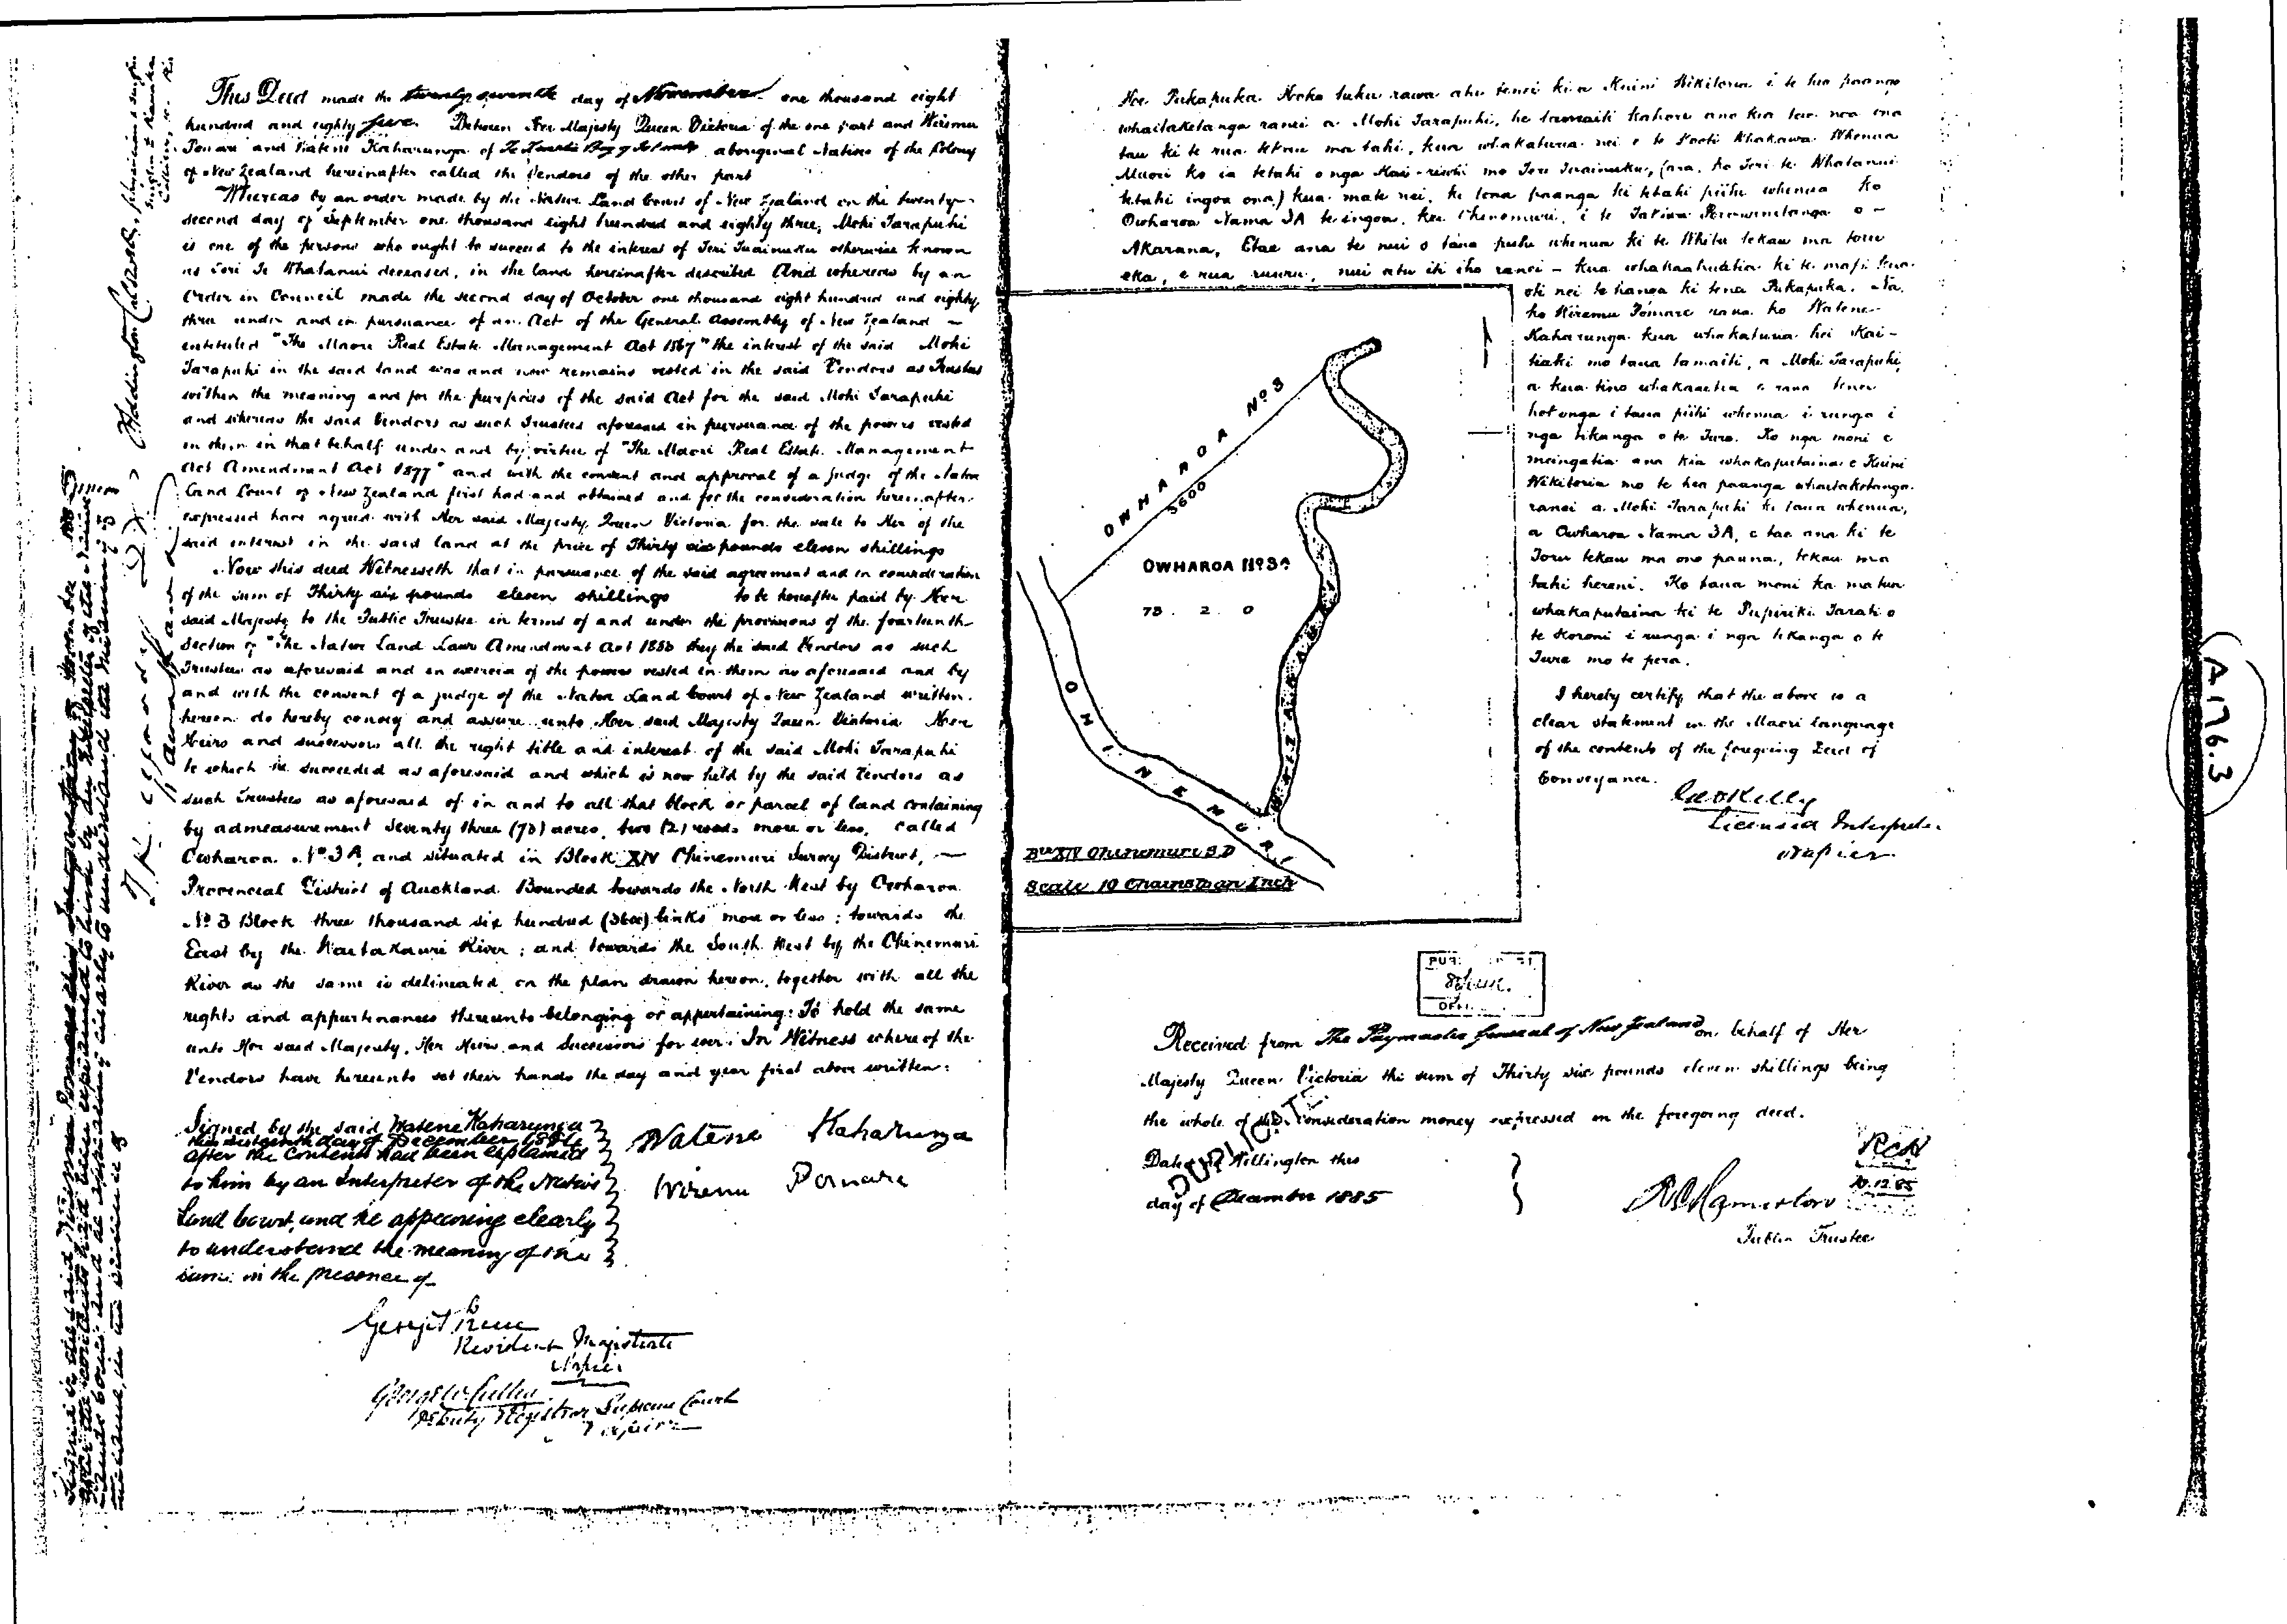 This Deed made the twenty seventh day of November one thousand eight
hundred and eighty five Between Her Majesty Queen Victoria of the one part and Wiremu
Pomare and Watene Kaharunga of aboriginal Natives of the Colony
of New Zealand hereinafter called the Vendors of the other part
Whereas by an order made by the Native Land Court of New Zealand on the twenty
second day of September one thousand eight hundred and eighty three, Mohi Tarapuhi
is one of the persons who ought to succeed to the interest of Teri Tuainuku otherwise known
as Teri Te Whatanui deceased, in the land hereinafter described And whereas by an
Order in Council made the second day of October one thousand eight hundred and eighty
three under and in pursuance of an Act of the General Assembly of New Zealand
intituled "The Maori Real Estate Management Act 1867" the interest of the said Mohi
Tarapuhi in the said land was and now remains vested in the said Vendors as Trustees
within the meaning and for the purposes of the said Act for the said Mohi Tarapuhi
and whereas the said Vendors as such Trustees aforesaid in pursuance of the powers vested
in them in that behalf under and by virtue of "The Maori Real Estate Management
Act Amendment Act 1877" and with the consent and approval of a Judge of the Native
Land Court of New Zealand first had and obtained and for the consideration hereinafter
expressed have agreed with Her said Majesty Queen Victoria for the sale to Her of the
said interest in the said land at the price of Thirty six pounds eleven shillings
Now this deed Witnesseth that in pursuance of the said agreement and in consideration
of the sum of Thirty six pounds eleven shillings to be hereafter paid by Her
said Majesty to the Public Trustee in terms of and under the provisions of the fourteenth
Section of "The Native Land Laws Amendment Act 1883 they the said Vendors as such
Trustees as aforesaid and in exercise of the powers vested in them as aforesaid and by
and with the consent of a judge of the Native Land Court of New Zealand written
hereon do hereby convey and assure unto Her said Majesty Queen Victoria Her
Heirs and successors all the right title and interest of the said Mohi Tarapuhi
to which he succeeded as aforesaid and which is now held by the said Vendors as
such Trustees as aforesaid of in and to all that block or parcel of land containing
by admeasurement Seventy three (73) acres, two (2) roods more or less, called
Owharoa No 3A, and situated in Block XIV Ohinemuri Survey District,
Provincial District of Auckland. Bounded towards the North West by Owharoa
No 3 Block three thousand six hundred (3600) links more or less; towards the
East by the Waitakauri River; and towards the South West by the Ohinemuri
River as the same is delineated on the plan drawn hereon, together with all the
rights and appurtenances thereunto belonging or appertaining: To hold the same
unto Her said Majesty, Her Heirs and Successors for ever: In Witness whereof the
Vendors have hereunto set their hands the day and year first above written:
Signed by the said Watene Kaharunga
this sixteenth day of December 1884
after the contents had been explained
to him by an Interpreter of the Native
Land Court, and he appearing clearly
to understand the meaning of the
same in the presence of
Watene Kaharunga
Wiremu Pomare
Resident Magistrate
Napier
Deputy Registrar Supreme Court
Napier
He Pukapuka Hoko tuku rawa atu tenei kia Kuini Wikitoria i te hea paanga
whaitaketanga ranei a Mohi Tarapuhi, he tamaiti kahore ano kia tae noa ona
tau ki te rua tekau ma tahi, kua whakaturia nei e te Kooti Whakawa Whenua
Maori ko ia tetahi o nga Kai-riiwhi mo Teri Tuainuku, (ara, ko Teri te Whatanui
tetahi ingoa ona) kua mate nei, ki tona paanga ki tetahi piihi whenua ko
Owharoa Nama 3A te ingoa, kei Ohinemuri, i te Takiwa Porowinetanga o
Akarana, Etae ana te nui o taua pihi whenua ki te Whitu tekau ma toru
eka, e rua ruuru, nui atu iti iho ranei - kua whakaahuatia ki te mapi kua
oti nei te hanga ki tenei Pukapuka. Na,
ko Wiremu Pomare raua ko Watene
Kaharunga kua whakaturia hei Kai-
tiaki mo taua tamaiti, a Mohi Tarapuhi,
a kua tino whakaaetia e raua tenei
hokonga i taua piihi whenua i runga i
nga tikanga o te Ture. Ko nga moni e
meingatia ana kia whakaputaina e Kuini
Wikitoria mo te hea paanga whaitaketanga
ranei a Mohi Tarapuhi ki taua whenua,
a Owharoa Nama 3A, e tae ana ki te
Toru tekau ma ono pauna, tekau ma
tahi hereni. Ko taua moni ka matua
whakaputaina ki te Pupiriki Tarati o
te Koroni i runga i nga tikanga o te
Ture mo te pera.
I hereby certify that the above is a
clear statement in the Maori language
of the contents of the foregoing Deed of
Conveyance.
Licensed Interpreter
Napier
OWHAROA No 3
3600
OWHAROA No 3A
73 . 2 . 0
WAITAKAURI
OHINEMURI
Blk XIV Ohinemuri S.D
Scale 10 Chains to an Inch
Received from The Paymaster General of New Zealand on behalf of Her
Majesty Queen Victoria the sum of Thirty six pounds eleven shillings being
the whole of the consideration money expressed in the foregoing deed.
Dated at Wellington this
day of December 1885
DUPLICATE
10.12.85
Public Trustee
A176.3